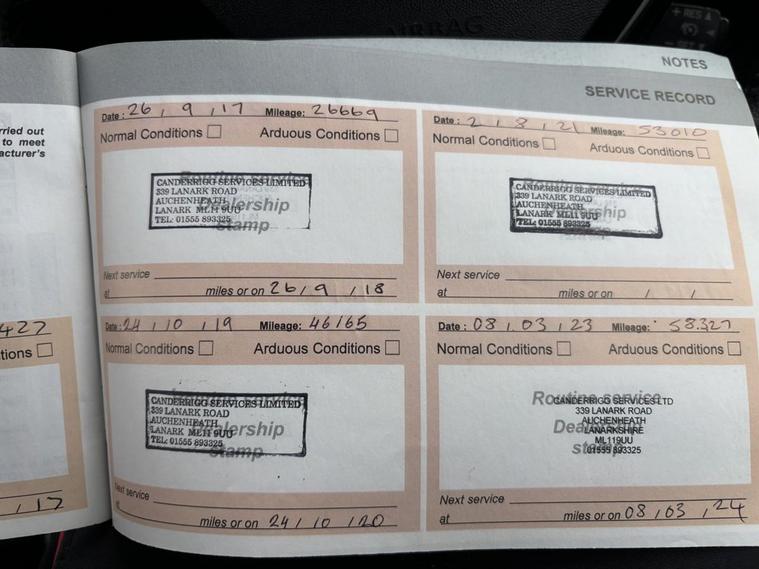 AIRBAG
+ RES
NOTES
SERVICE RECORD
rried out
to meet
acturer's
427
tions
, 17
Date : 26 / 9 / 17 Mileage: 26669
Normal Conditions Arduous Conditions
Routine service
Dealership
stamp
CANDERRIGG SERVICES LIMITED
339 LANARK ROAD
AUCHENHEATH
LANARK ML11 9UU
TEL: 01555 893325
Next service
at miles or on 26 / 9 / 18
Date : 2 / 8 / 21 Mileage: 53010
Normal Conditions Arduous Conditions
CANDERRIGG SERVICES LIMITED
339 LANARK ROAD
AUCHENHEATH
LANARK ML11 9UU
TEL: 01555 893325
Next service
at miles or on / /
Date : 24 / 10 / 19 Mileage: 46165
Normal Conditions Arduous Conditions
Routine service
Dealership
stamp
CANDERRIGG SERVICES LIMITED
339 LANARK ROAD
AUCHENHEATH
LANARK ML11 9UU
TEL: 01555 893325
Next service
at miles or on 24 / 10 / 20
Date : 08 / 03 / 23 Mileage: 58.327
Normal Conditions Arduous Conditions
Routine service
CANDERRIGG SERVICES LTD
339 LANARK ROAD
AUCHENHEATH
LANARKSHIRE
ML119UU
01555 893325
Next service
at miles or on 08 / 03 / 24